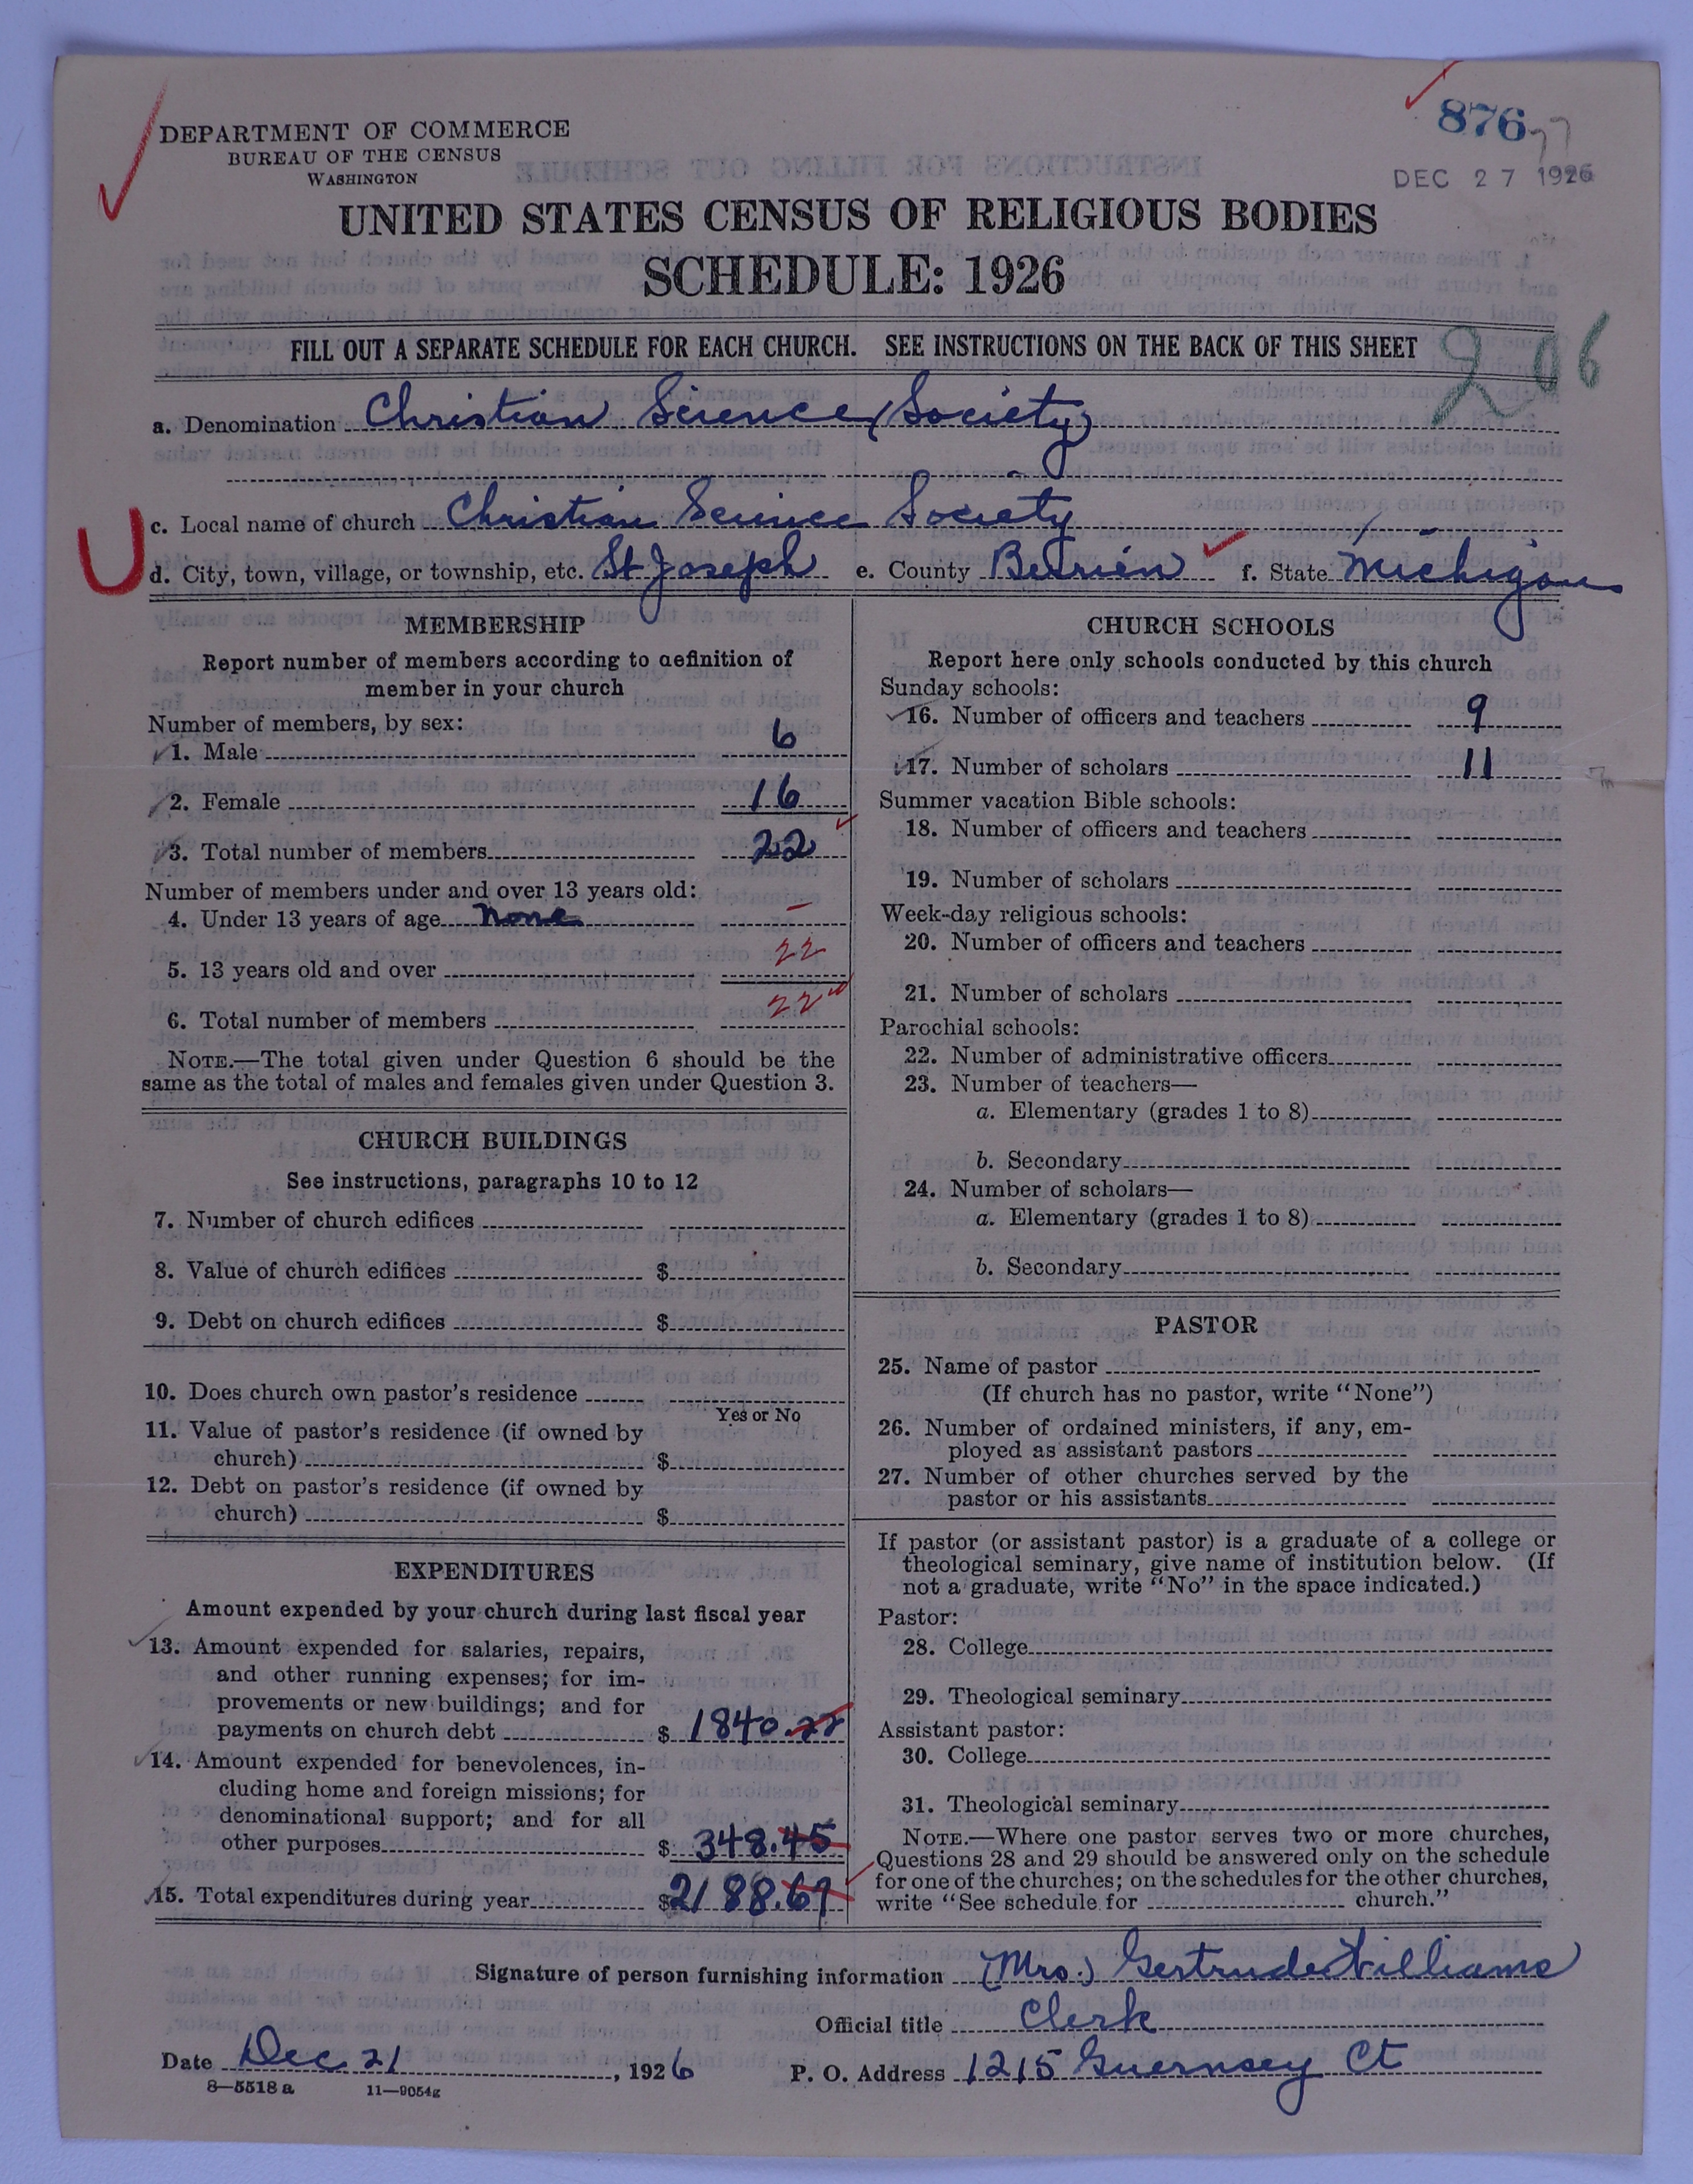 876
DEPARTMENT OF COMMERCE
BUREAU OF THE CENSUS
WASHINGTON
DEC 27 1926
UNITED STATES CENSUS OF RELIGIOUS BODIES
SCHEDULE: 1926
FILL OUT A SEPARATE SCHEDULE FOR EACH CHURCH. SEE INSTRUCTIONS ON THE BACK OF THIS SHEET
206
a. Denomination Christian Science (Society)
c. Local name of church Christian Science Society
U
d. City, town, village, or township, etc. St Joseph e. County Berrien f. State Michigan
MEMBERSHIP
Report number of members according to definition of
member in your church
Number of members, by sex:
1. Male 6
2. Female 16
3. Total number of members 22
Number of members under and over 13 years old:
4. Under 13 years of age none –
5. 13 years old and over 22
6. Total number of members 22
NOTE.—The total given under Question 6 should be the
same as the total of males and females given under Question 3.
CHURCH BUILDINGS
See instructions, paragraphs 10 to 12
7. Number of church edifices
8. Value of church edifices $
9. Debt on church edifices $
10. Does church own pastor's residence
Yes or No
11. Value of pastor's residence (if owned by
church) $
12. Debt on pastor's residence (if owned by
church) $
EXPENDITURES
Amount expended by your church during last fiscal year
13. Amount expended for salaries, repairs,
and other running expenses; for im-
provements or new buildings; and for
payments on church debt $ 1840.22
14. Amount expended for benevolences, in-
cluding home and foreign missions; for
denominational support; and for all
other purposes $ 348.45
15. Total expenditures during year $2188.67
CHURCH SCHOOLS
Report here only schools conducted by this church
Sunday schools:
16. Number of officers and teachers 9
17. Number of scholars 11
Summer vacation Bible schools:
18. Number of officers and teachers
19. Number of scholars
Week-day religious schools:
20. Number of officers and teachers
21. Number of scholars
Parochial schools:
22. Number of administrative officers
23. Number of teachers—
a. Elementary (grades 1 to 8)
b. Secondary
24. Number of scholars—
a. Elementary (grades 1 to 8)
b. Secondary
PASTOR
25. Name of pastor
(If church has no pastor, write "None")
26. Number of ordained ministers, if any, em-
ployed as assistant pastors
27. Number of other churches served by the
pastor or his assistants
If pastor (or assistant pastor) is a graduate of a college or
theological seminary, give name of institution below. (If
not a graduate, write "No" in the space indicated.)
Pastor:
28. College
29. Theological seminary
Assistant pastor:
30. College
31. Theological seminary
NOTE.—Where one pastor serves two or more churches,
Questions 28 and 29 should be answered only on the schedule
for one of the churches; on the schedules for the other churches,
write "See schedule for church."
Signature of person furnishing information (Mrs.) Gertrude Williams
Official title Clerk
Date Dec. 21, 1926 P. O. Address 1215 Guernsey Ct
8—5518 a 11—9054g